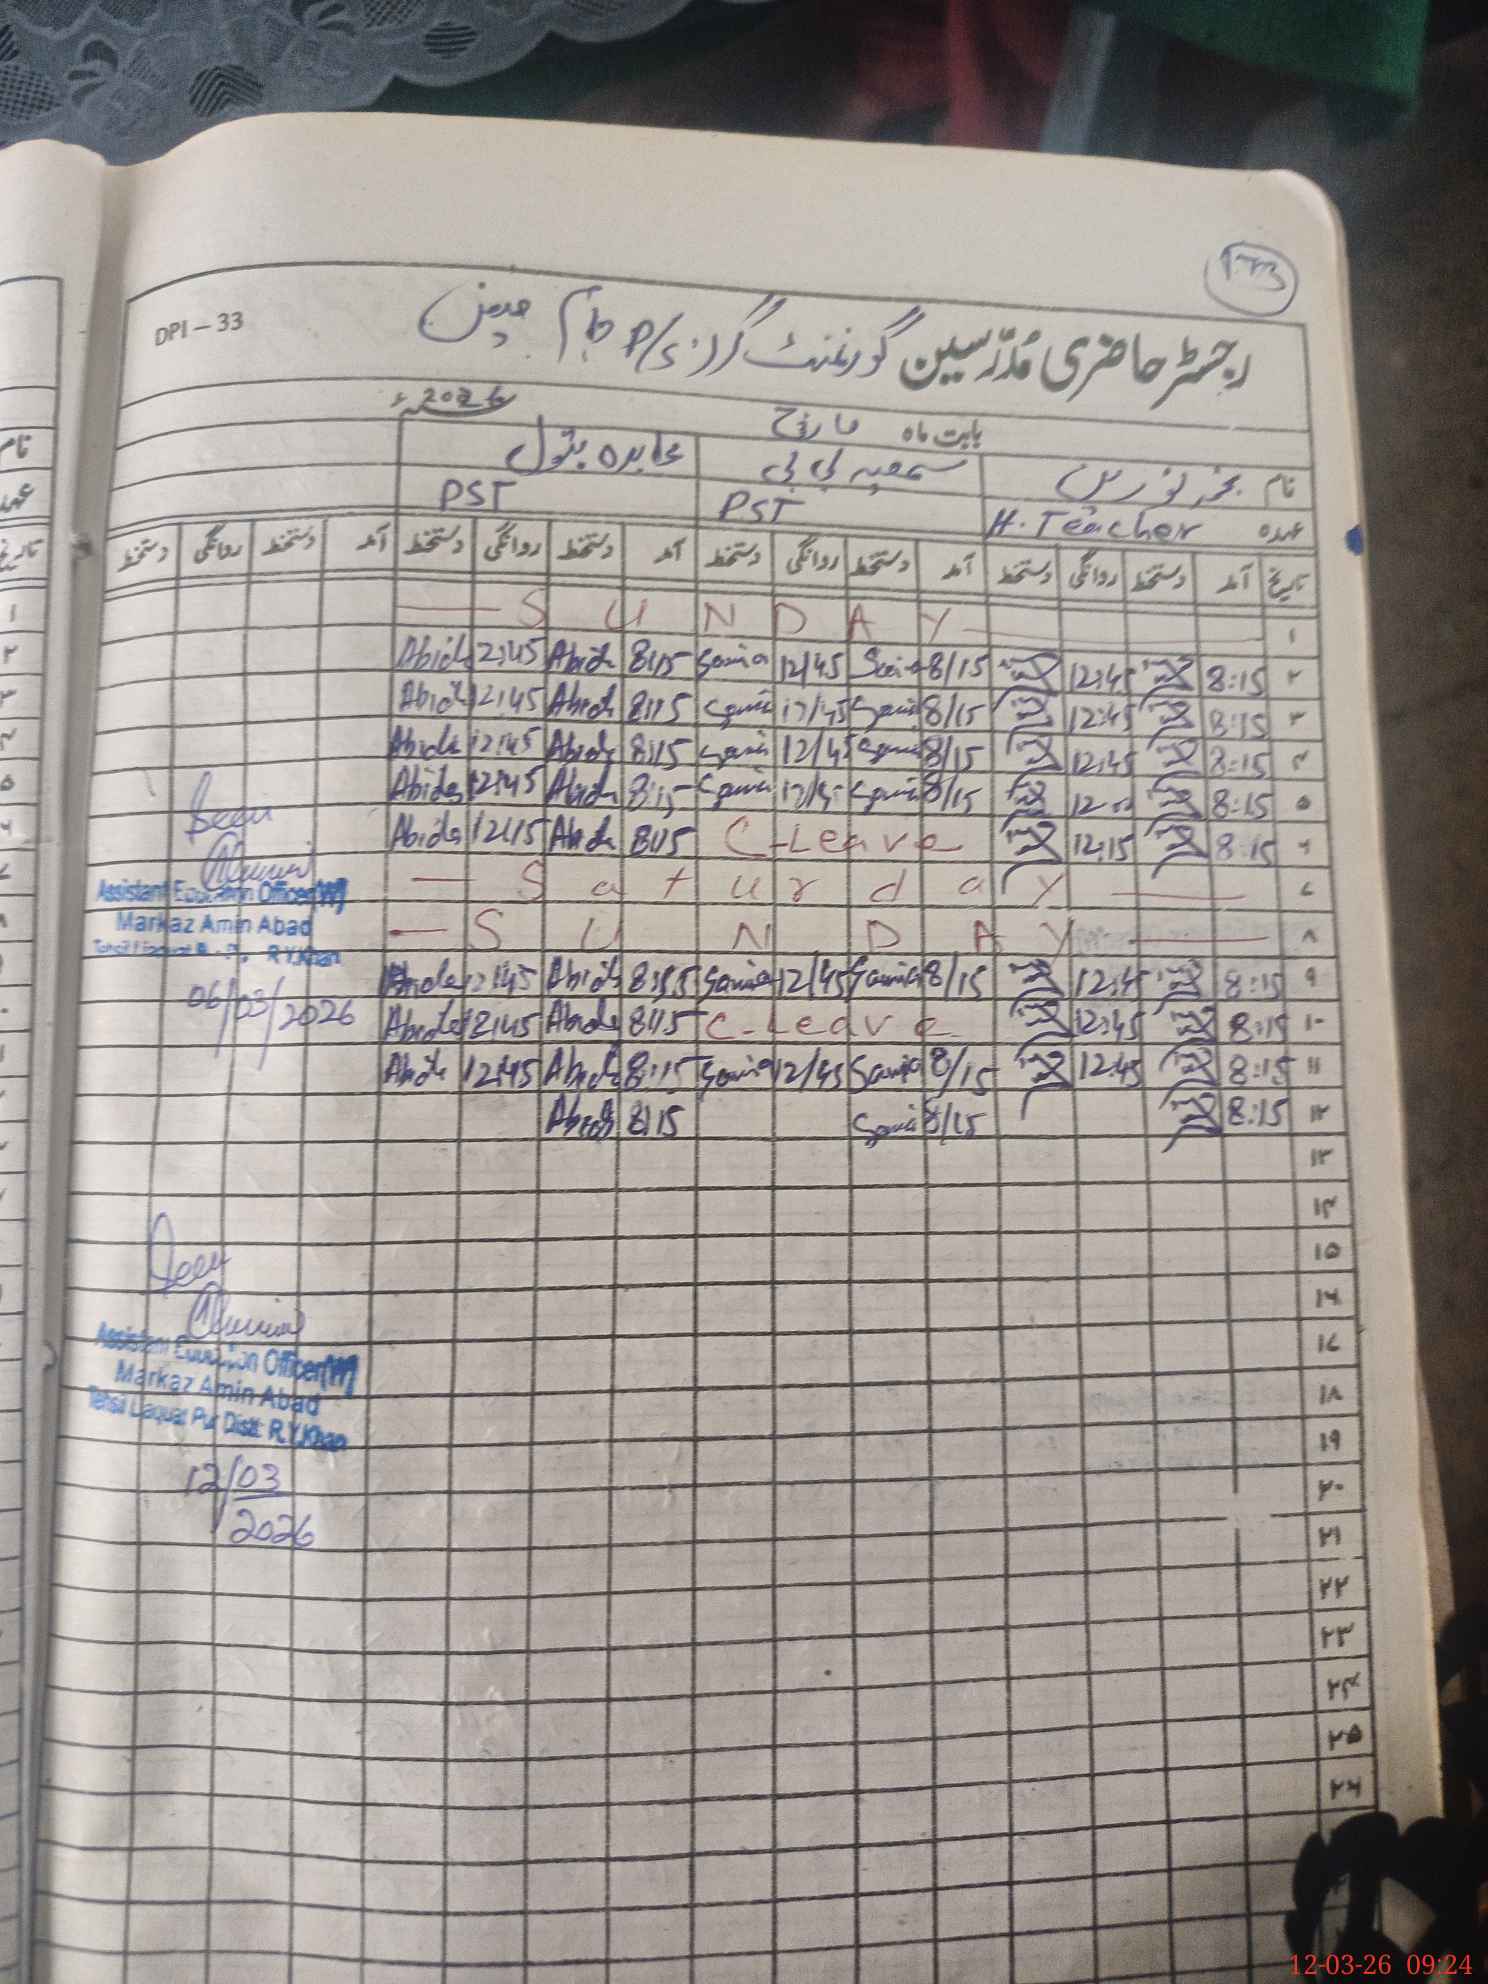 DPI – 33
رجسٹر حاضری مُدرّسین گورنمنٹ گرلز P/S
بابت ماہ مارچ 2026ء
نام سمعیہ بی بی عابدہ بتول
عہدہ H. Teacher PST PST
تاریخ آمد دستخط روانگی دستخط آمد دستخط روانگی دستخط آمد دستخط روانگی دستخط آمد دستخط روانگی دستخط
۱ SUNDAY
۲ 8:15 12:45 8/15 12/45 Samia 8:15 Abida 12:45 Abida
۳ 8:15 12:45 8/15 Samia 12/45 Samia 8:15 Abida 12:45 Abida
۴ 8:15 12:45 8/15 Samia 12/45 Samia 8:15 Abida 12:45 Abida
۵ 8:15 8/15 Samia Samia 8:15 Abida 12:45 Abida
۶ 8:15 12:15 C-Leave 8:15 Abida 12:15 Abida
۷ Saturday
۸ SUNDAY
۹ 8:15 12:45 8/15 Samia 12/45 Samia Abida 12:45 Abida
۱۰ 8:15 12:45 C-Leave 8:15 Abida 12:45 Abida
۱۱ 8:15 12:45 8/15 Samia 12/45 Samia 8:15 Abida 12:45 Abida
۱۲ 8:15 8/15 Samia 8:15 Abida
۱۳
۱۴
۱۵
۱۶
۱۷
۱۸
۱۹
۲۰
۲۱
۲۲
۲۳
۲۴
۲۵
۲۶
Seen
Assistant Education Officer(W)
Markaz Amin Abad
R.Y.Khan
06/03/2026
Seen
Assistant Education Officer(W)
Markaz Amin Abad
Tehsil Liaquat Pur Distt: R.Y.Khan
12/03
2026
نام
عہدہ
12-03-26 09:24